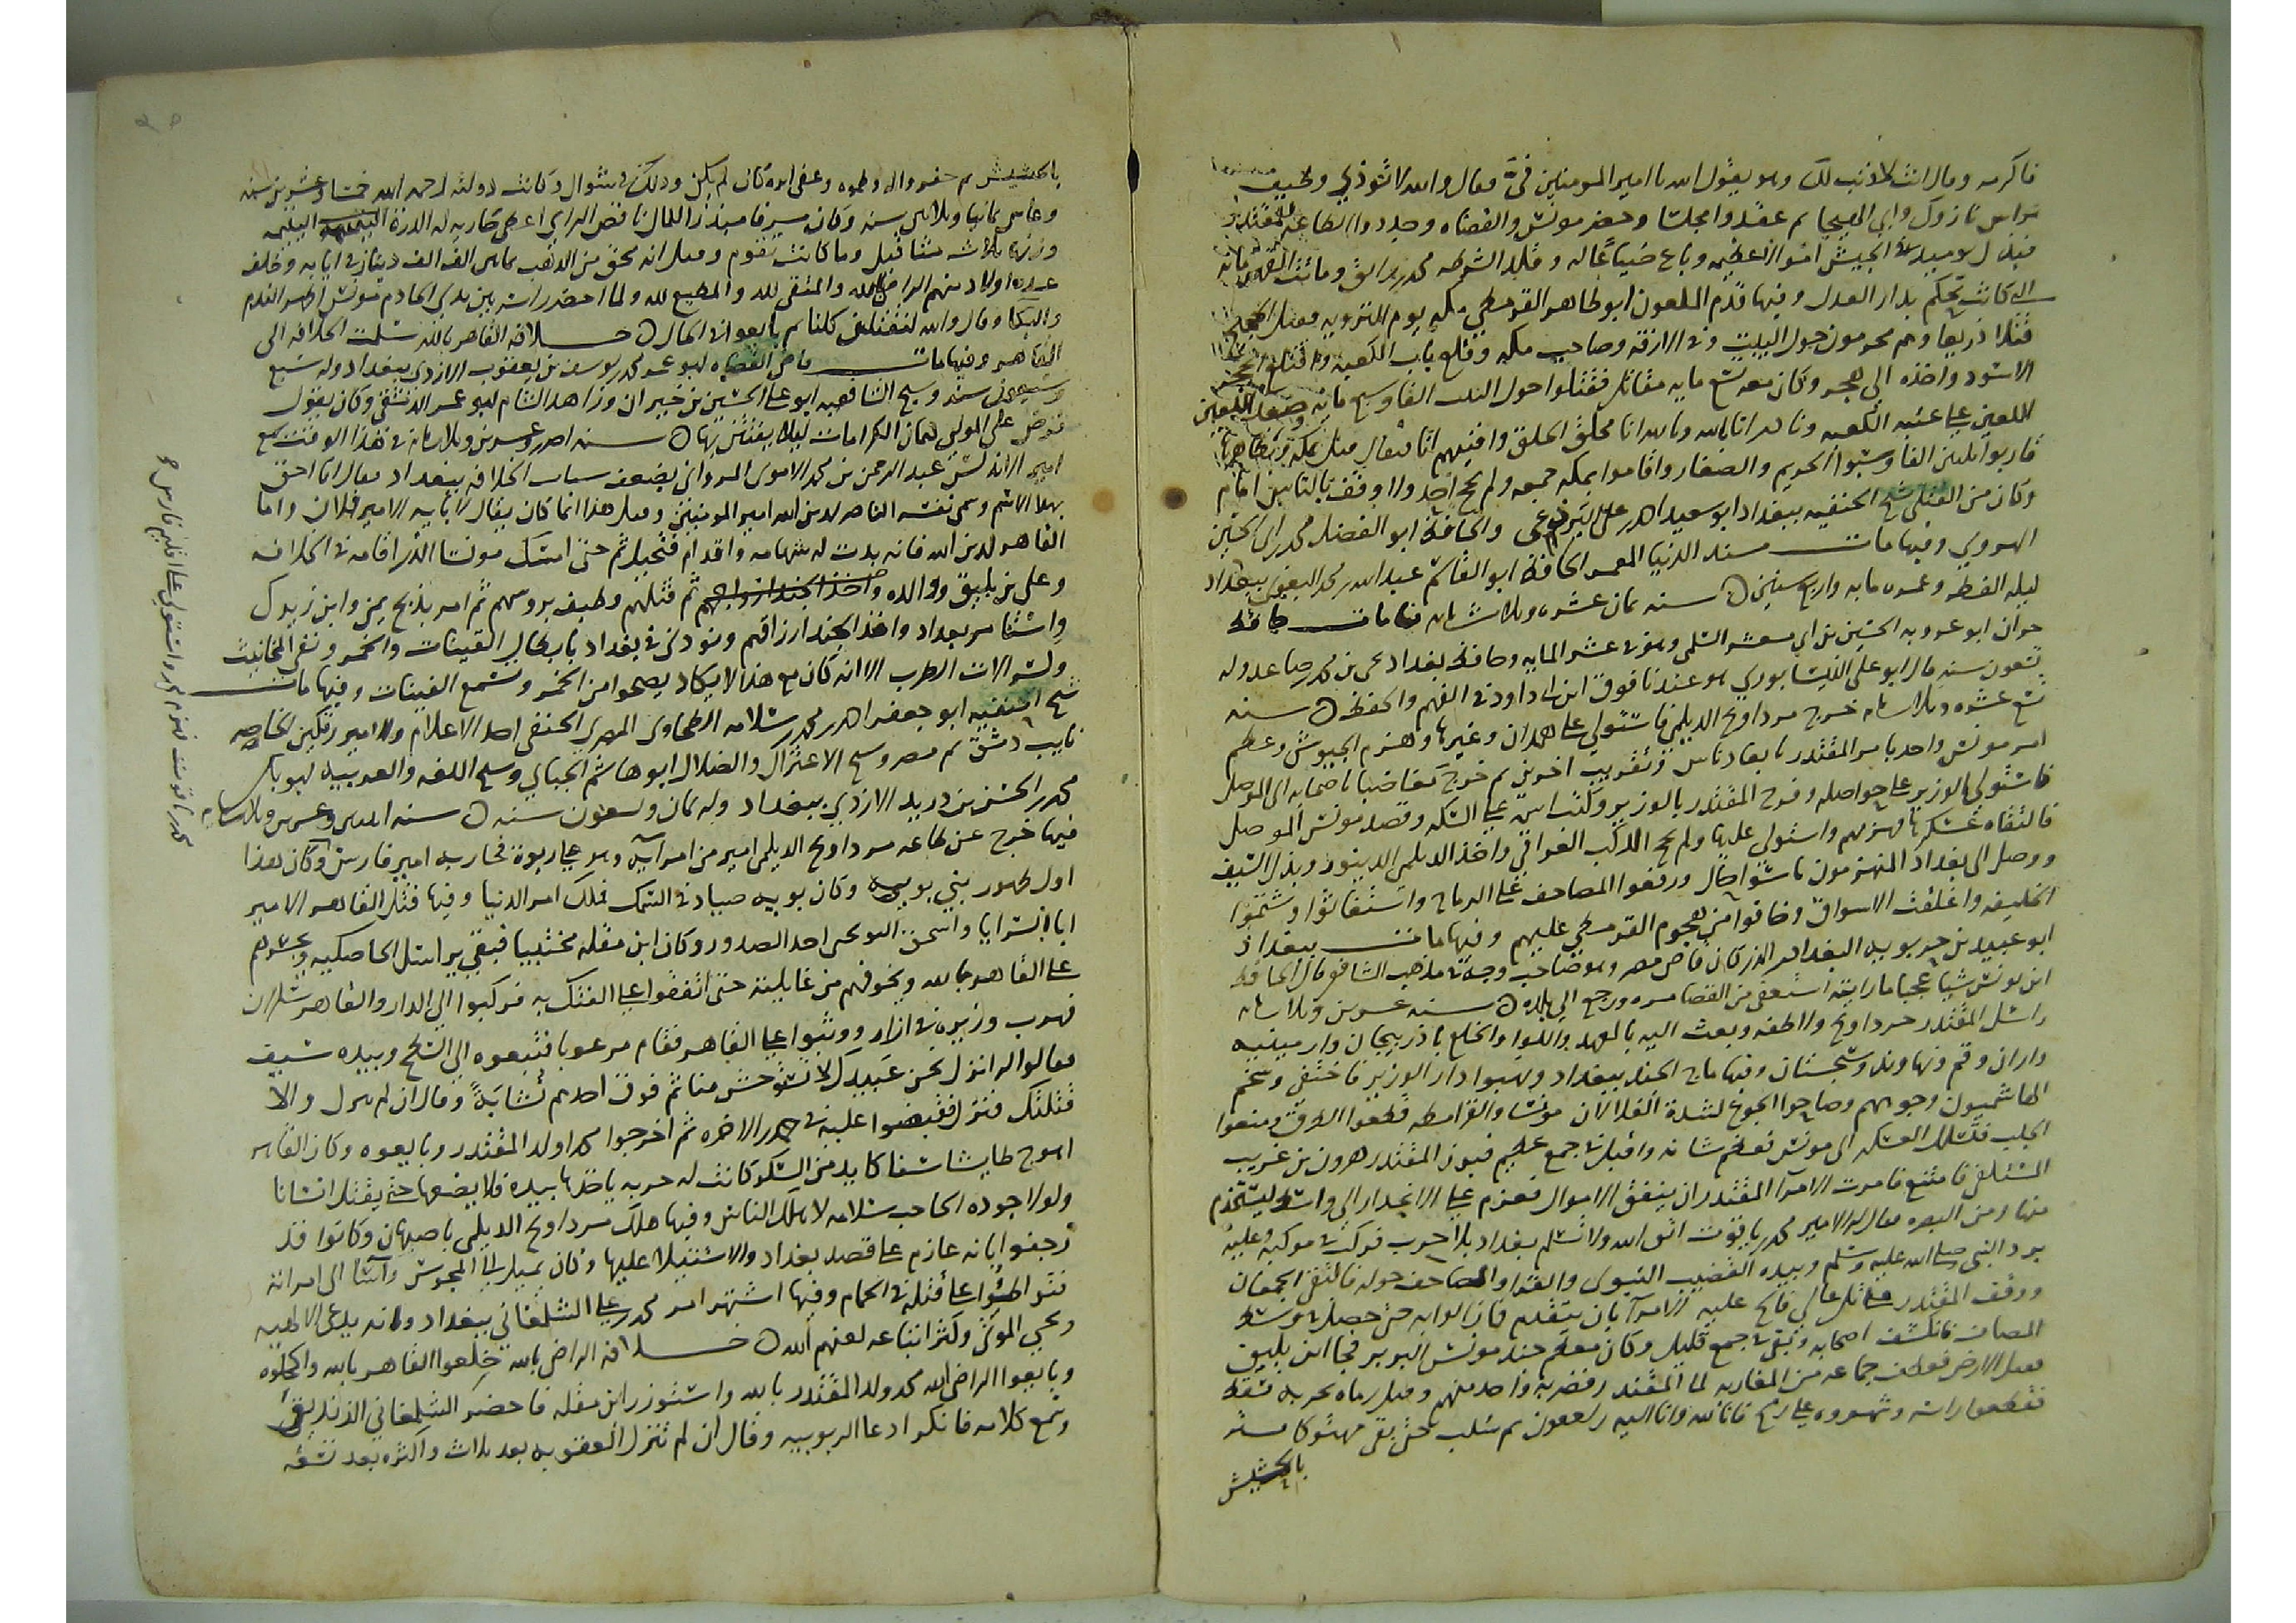 فاكرمه وقال انت لا ذنب لك وهو يقول الله يا امير المومنين فيّ فقال والله لا تُوذي وطيف
براس نازوك وابي الهيجا ثم عقدوا مجلسا وحضر مونس والقضاه وجددوا الطاعه للمقتدر
فبذل يوميذ في الجيش اموالا عظيمه وباع ضياعا له وقلد الشرطه محمد بن رايق وماتت القهرمانه
التي كانت تحكم بدار العدل وفيها قدم الملعون ابو طاهر القرمطي مكه يوم الترويه فقتل الحجيج
قتلا ذريعا وهم محرمون حول البيت وفي الازقه وصاحب مكه وقلع باب الكعبه واقتلع الحجر
الاسود واخذه الى هجر وكان معه تسع مايه مقاتل فقتلوا حول البيت الفا وسبع مايه وصعد اللعين
على عتبه الكعبه ونادى انا بالله وبالله انا يخلق الخلق وافنيهم انا فيقال قتل بمكه وظاهرها
قاربوا ثلثين الفا وسبوا الحريم والصغار واقاموا بمكه جمعه ولم يحج احد ولا وقف بالناس امام
وكان من القتلى شيخ الحنفيه ببغداد ابو سعيد احمد بن علي البردعي والحافظ ابو الفضل محمد بن ابي الحسين
الهروي وفيها مات مسند الدنيا المعمر الحافظ ابو القاسم عبد الله بن محمد البغوي ببغداد
ليله الفطر وعمره مايه واربع سنين سنه ثمان عشره وثلاث مايه فيها مات حافظ
حران ابو عروبه الحسين بن ابي معشر السلمي وهو في عشر المايه وحافظ بغداد يحيى بن محمد بن صاعد وله
تسعون سنه قال ابو علي النيسابوري هو عندنا فوق ابن ابي داود في الفهم والحفظ سنه
تسع عشره وثلاث مايه خرج مرداويج الديلمي فاستولى على همدان وغيرها وهزم الجيوش وعظم
امر مونس واحد يامر المقتدر بابعاد ناس وتقريب اخرين ثم خرج مغاضبا باصحابه الى الموصل
فاستولى الوزير على حواصله وفرح المقتدر بالوزير وكتب اسمه على السكه وقصد مونس الموصل
فالتقاه عسكرها فهزمهم واستولى عليها ولم يحج الركب العراقي واخذ الديلمي الدينور وبذل السيف
ووصل الى بغداد المنهزمون باسوا حال ورفعوا المصاحف على الرماح واستغاثوا وشتموا
الخليفه واغلقت الاسواق وخافوا من هجوم القرمطي عليهم وفيها مات ببغداد
ابو عبيد بن حربويه البغدادي الذي كان قاضي مصر وهو صاحب وجه في مذهب الشافعي قال الحافظ
ابن يونس شيا عجبا ما راينا استعفى من القضا مره ورجع الى بلده سنه عشرين وثلاث مايه
راسل المقتدر مرداويج ولاطفه وبعث اليه بالعهد واللوا والخلع باذربيجان وارمينيه
واران وقم ونهاوند وسجستان وفيها هاج الجند ببغداد ونهبوا دار الوزير فاختفى وسخم
الهاشميون وجوههم وصاحوا الجوع لشدة الغلا لان مونسا والقرامطه قطعوا الطرق ومنعوا
الجلب فتسلل العسكر الى مونس فعظم شانه واقبل في جمع عظيم فبرز المقتدر هرون بن غريب
المسلفى فامتنع فامرت الامرا المقتدر ان ينفق الاموال فعزم على الانحدار الى واسط ليستخدم
منها ومن البصره فقال له الامير محمد بن ياقوت اتق الله ولا تسلم بغداد بلا حرب فركب في موكبه وعليه
برد النبي صلى الله عليه وسلم وبيده القضيب النبوى والقرا والمصاحف حوله فالتقى الجمعان
ووقف المقتدر على تل عالي فالح عليه الامرا بان يتقدم فان لوابه حتى حصل في وسط
المصاف فانكشف اصحابه وبقي في جمع قليل وكان معظم جند مونس البربر فجا ابن بليق
فقبل الارض فعطف جماعه من المغاربه لما المقتدر فضربه واحد منهم وقيل رماه بحربه فسقط
فقطعوا راسه وشهروه على رمح فانا لله وانا اليه راجعون ثم سلب حتى بقى مهتوكا ستر
بالحشيش
بالحشيش ثم حفر واله وطموه وعفى اثره كان لم يكن وذلك في شوال وكانت دولته رحمه الله خمسا وعشرين سنه
وعاش ثمانيا وثلاثين سنه وكان مسرفا مبذرا للمال ناقص الراي اعطى جاريه له الدرة اليتيمه
وزنها ثلاث مثاقيل وما كانت تقوم وقيل انه محق من الذهب ثمانين الف الف دينار في ايامه وخلف
عده اولاد منهم الراضي بالله والمتقي لله والمطيع لله ولما احضر راسه بين يدي الخادم مونس اظهر الندم
والبكا وقال والله لنقتلن كلنا ثم بايعوا في الحال خلافه القاهر بالله سلمت الخلافه الى
القاهر وفيها مات قاضي القضاه ابو عمر محمد بن يوسف بن يعقوب الازدي ببغداد وله سبع
وسبعون سنه وشيخ الشافعيه ابو علي الحسين بن خيران وزاهد الشام ابو عمر الدمشقي وكان يقول
فرض على الولي كتمان الكرامات ليلا يفتتن بها سنه احدى وعشرين وثلاث مايه في هذا الوقت سمع
امير الاندلس عبد الرحمن بن محمد الاموى المرواني بضعف سباب الخلافه ببغداد فقال انا احق
بهذا الاسم وسمى نفسه الناصر لدين الله امير المومنين وقيل هذا انما كان يقال لابايه الامير فلان واما
القاهر لدين الله فانه بدت له شهامه واقدام فتحيل ثم حتى امسك مونسا الذي اقامه في الخلافه
وعلي بن بليق ووالده ثم قتلهم وطيف بروسهم ثم امر بذبح يمن وابن زيرك
واستقام امر بغداد واخذ الجند ارزاقهم ونودي في بغداد بابطال القينات والخمر ونفى المخانيث
ولسر الات الطرب الا انه كان مع هذا لا يكاد يصحوا من الخمر وسمع القينات وفيها مات
شيخ الحنفيه ابو جعفر احمد بن محمد بن سلامه الطحاوى المصري الحنفي احد الاعلام والامير تكين الخاصه
نايب دمشق ثم مصر وشيخ الاعتزال والضلال ابو هاشم الجبايي وشيخ اللغه والعربيه ابو بكر
محمد بن الحسن بن دريد الازدي ببغداد وله ثمان وتسعون سنه سنه اثنين وعشرين وثلاث مايه
فيها خرج عن طاعه مرداويج الديلمي امير من امرآيه وهو علي بن بوية فحاربه امير فارس وكان هذا
اول ظهور بني بويه وكان بويه صيادفي السمك فملك امر الدنيا وفيها قتل القاهر الامير
ابا السرايا واسحق النوبختي احد الصدور وكان ابن مقله مختبيا فبقي يراسل الخاصكيه ويجسرهم
على القاهر بالله ويخوفهم من غايلته حتى اتفقوا على الفتك به فركبوا الى الدار والقاهر سكران
فهرب وزيره في ازار ووثبوا على القاهر فقام مرعوبا فتبعوه الى السطح وبيده سيف
فقالوا له انزل نحن عَبيدك لا تستوحش منا ثم فوق احدهم نُشابَةً وقال ان لم تنزل والا
قتلتك فنزل فقبضوا عليه في جمدى الاخره ثم اخرجوا محمدا ولد المقتدر وبايعوه وكان القاهر
اهوج طايشا سفاكا يدمن السكر كانت له حربه ياخذها بيده فلا يضعها حتى يقتل انسانا
ولولا جوده الحاجب سلامه لاهلك الناس وفيها هلك مرداويج الديلمي باصبهان وكانوا قد
ارجفوا بانه عازم على قصد بغداد والاستيلاء عليها وكان يميل الى المجوس واسا الى امرائه
فتواطوا على قتله في الحمام وفيها اشتهر امر محمد بن علي الشلمغاني ببغداد وانه يدعي الالاهيه
ويحيي الموتى وكثر اتباعه لعنهم الله خلافه الراضي بالله خلعوا القاهر بالله واكحلوه
وبايعوا الراضي بالله محمد ولد المقتدر بالله واستوزر ابن مقله فاحضر الشلمغاني الزنديق
وسمع كلامه فانكر ادعا الربوبيه وقال ان لم تنزل العقوبه بعد ثلاث واكثره بعد تسعه
محمد بن ياقوت فهزمهم واستولى على اقليم فارس